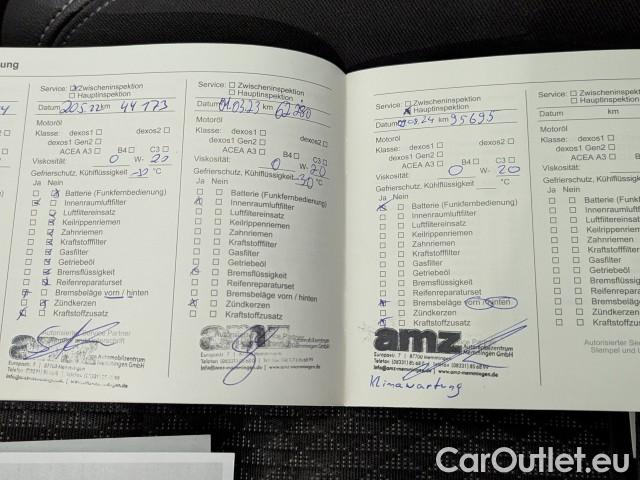 ung
Service: Zwischeninspektion
Hauptinspektion
Datum 20.5.22 km 44 173
Motoröl
Klasse: dexos1 dexos2
dexos1 Gen2
ACEA A3 B4 C3
Viskosität: 0 W- 20
Gefrierschutz, Kühlflüssigkeit °C
Ja Nein
Batterie (Funkfernbedienung)
Innenraumluftfilter
Luftfiltereinsatz
Keilrippenriemen
Zahnriemen
Kraftstofffilter
Gasfilter
Getriebeöl
Bremsflüssigkeit
Reifenreparaturset
Bremsbeläge vorn / hinten
Zündkerzen
Kraftstoffzusatz
Europastr. 7 | 87700 Memmingen
info@amz-memmingen.de
Service: Zwischeninspektion
Hauptinspektion
Datum 01.03.23 km 62 280
Motoröl
Klasse: dexos1 dexos2
dexos1 Gen2
ACEA A3 B4 C3
Viskosität: 0 W- 20
Gefrierschutz, Kühlflüssigkeit -30 °C
Ja Nein
Batterie (Funkfernbedienung)
Innenraumluftfilter
Luftfiltereinsatz
Keilrippenriemen
Zahnriemen
Kraftstofffilter
Gasfilter
Getriebeöl
Bremsflüssigkeit
Reifenreparaturset
Bremsbeläge vorn / hinten
Zündkerzen
Kraftstoffzusatz
amz Automobilzentrum
Memmingen GmbH
info@amz-memmingen.de | www.amz-memmingen.de
Service: Zwischeninspektion
Hauptinspektion
Datum 08.24 km 95695
Motoröl
Klasse: dexos1 dexos2
dexos1 Gen2
ACEA A3 B4 C3
Viskosität: 0 W- 20
Gefrierschutz, Kühlflüssigkeit °C
Ja Nein
Batterie (Funkfernbedienung)
Innenraumluftfilter
Luftfiltereinsatz
Keilrippenriemen
Zahnriemen
Kraftstofffilter
Gasfilter
Getriebeöl
Bremsflüssigkeit
Reifenreparaturset
Bremsbeläge vorn / hinten
Zündkerzen
Kraftstoffzusatz
amz Automobilzentrum
Memmingen GmbH
Europastr. 7 | 87700 Memmingen
info@amz-memmingen.de | www.amz-memmingen.de
Klimawartung
Service: Zwischeninspektion
Hauptinspektion
Datum km
Motoröl
Klasse: dexos1
dexos1 Gen2
ACEA A3
Viskosität:
Gefrierschutz, Kühlflüssigkeit
Ja Nein
Batterie (Funkfernbed
Innenraumluftfilter
Luftfiltereinsatz
Keilrippenriemen
Zahnriemen
Kraftstofffilter
Gasfilter
Getriebeöl
Bremsflüssigkeit
Reifenreparaturset
Bremsbeläge vorn
Zündkerzen
Kraftstoffzusatz
Autorisierter Se
Stempel und U
CarOutlet.eu